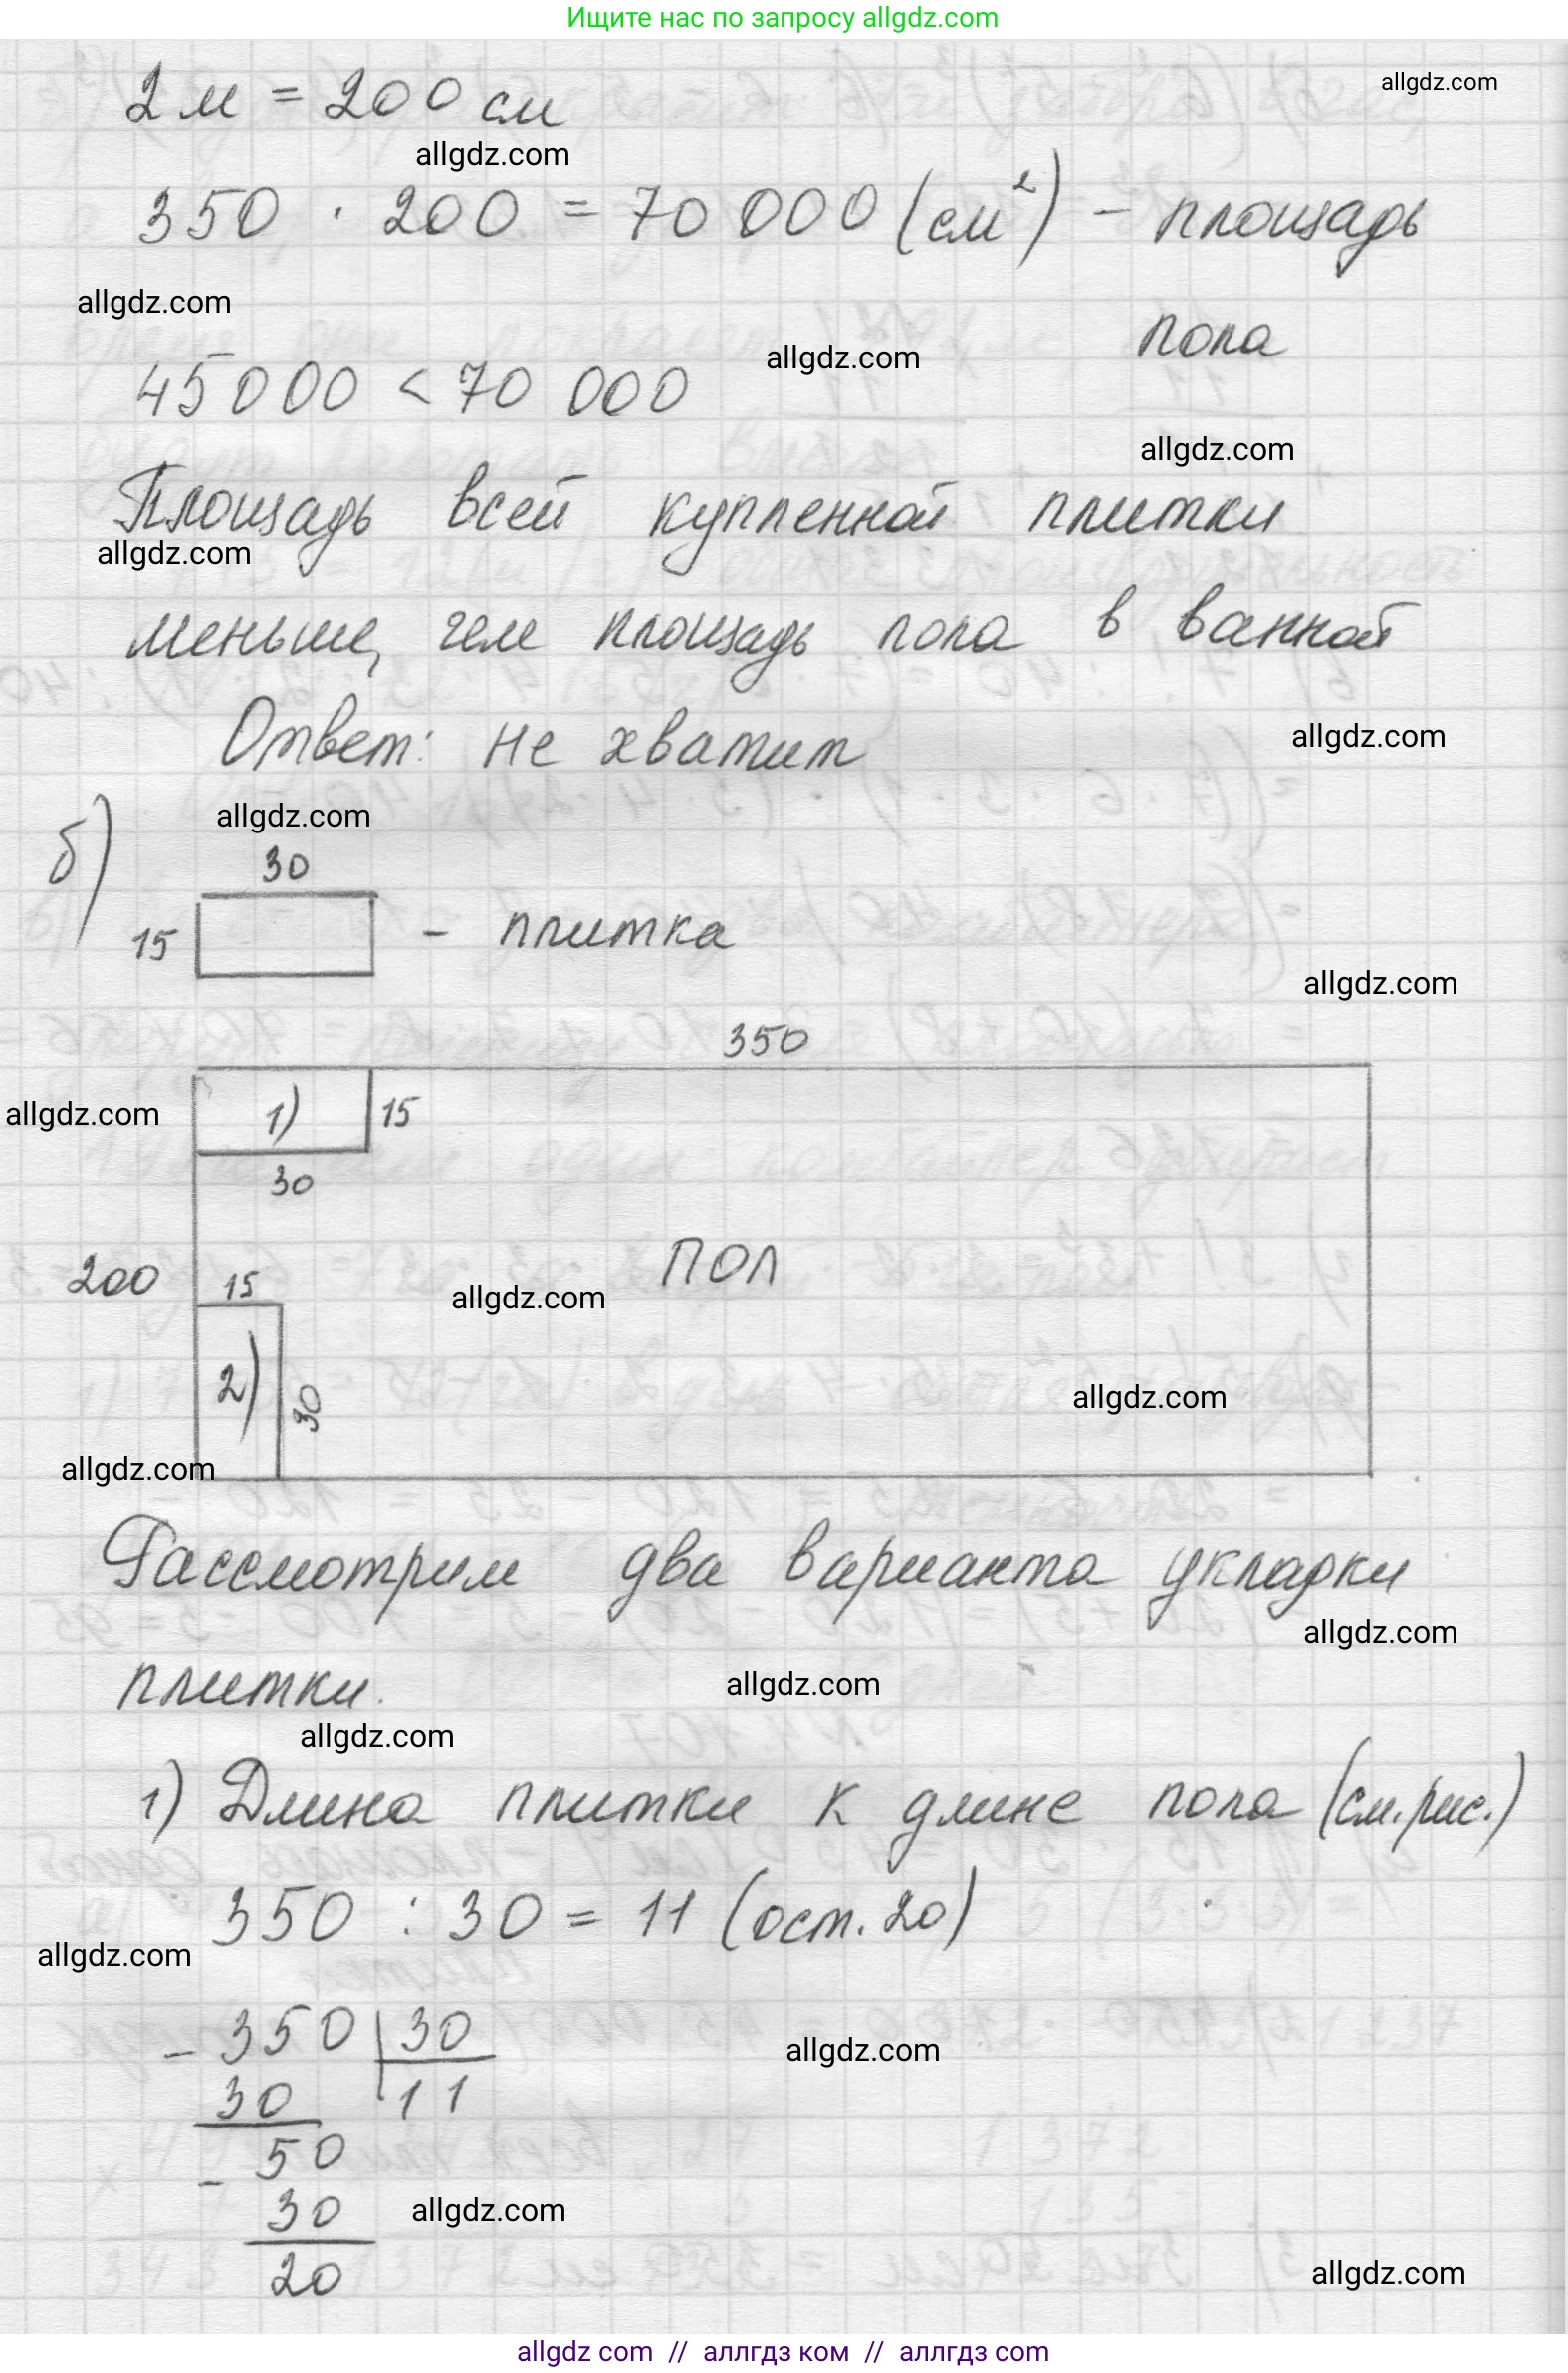 Ищите нас по запросу allgdz.com
allgdz.com
2 м = 200 см
allgdz.com
350 · 200 = 70 000 (см²) - площадь
allgdz.com
пола
allgdz.com
45000 < 70 000
allgdz.com
Площадь всей купленной плитки
allgdz.com
меньше, чем площадь пола в ванной
Ответ: не хватит
allgdz.com
allgdz.com
б)
30
15 - плитка
allgdz.com
350
allgdz.com
1) 15
30
ПОЛ
200 15
allgdz.com
2) 30
allgdz.com
allgdz.com
Рассмотрим два варианта укладки
allgdz.com
плитки.
allgdz.com
allgdz.com
1) Длина плитки к длине пола (см. рис.)
350 : 30 = 11 (ост. 20)
allgdz.com
- 350 | 30
allgdz.com
30 11
- 50
30
allgdz.com
20
allgdz.com
allgdz com // аллгдз ком // аллгдз com